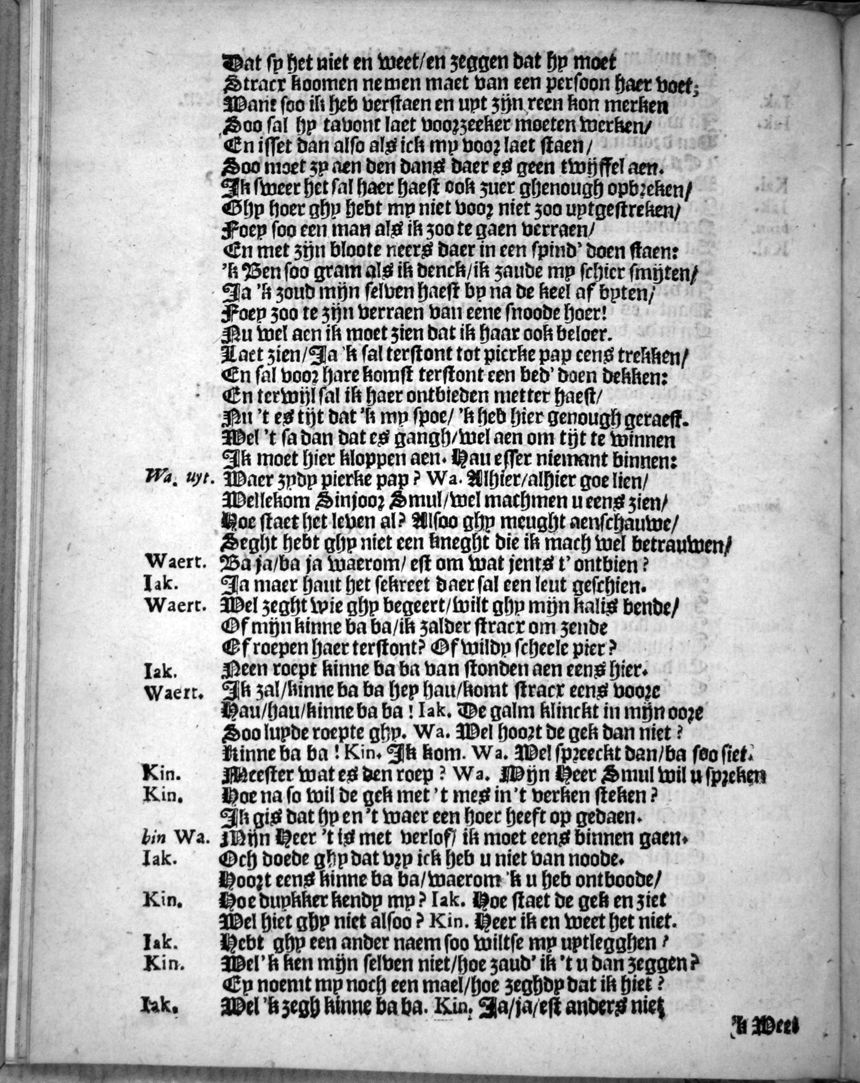 Dat sy het niet en weet/en zeggen dat hy moet
Stracx koomen nemen maet van een persoon haer voet;
Want soo ik heb verstaen en uyt zijn reen kon merken
Soo sal hy tavont laet voorzeeker moeten werken/
En isset dan also als ick my voor laet staen/
Soo moet zy aen den dans daer es geen twijffel aen.
Ik sweer het sal haer haest ook zuer ghenough opbreken/
Ghy hoer ghy hebt my niet voor niet zoo uytgestreken/
Foey soo een man als ik zoo te gaen verraen/
En met zijn bloote neers daer in een spind' doen staen:
'k Ben soo gram als ik denck/ik zaude my schier smijten/
Ja 'k zoud mijn selven haest by na de keel af byten/
Foey zoo te zijn verraen van eene snoode hoer!
Nu wel aen ik moet zien dat ik haar ook beloer.
Laet zien/Ja 'k sal terstont tot pierke pap eens trekken/
En sal voor hare komst terstont een bed' doen dekken:
En terwijl sal ik haer ontbieden metter haest/
Nu 't es tijt dat 'k my spoe/ 'k heb hier genough geraest.
Wel 't sa dan dat es gangh/wel aen om tijt te winnen
Ik moet hier kloppen aen. Hau esser niemant binnen:
Wa. uyt. Waer zydy pierke pap? Wa. Alhier/alhier goe lien/
Wellekom Sinjoor Smul/wel machmen u eens zien/
Hoe staet het leven al? Alsoo ghy meught aenschauwe/
Seght hebt ghy niet een kneght die ik mach wel betrauwen/
Waert. Ba ja/ba ja waerom/ est om wat jents t' ontbien?
Iak. Ja maer haut het sekreet daer sal een leut geschien.
Waert. Wel zeght wie ghy begeert/wilt ghy mijn kalis bende/
Of mijn kinne ba ba/ik zalder stracx om zende
Of roepen haer terstont? Of wildy scheele pier?
Iak. Neen roept kinne ba ba van stonden aen eens hier.
Waert. Ik zal/kinne ba ba hey hau/komt stracx eens voore
Hau/hau/kinne ba ba! Iak. De galm klinckt in mijn oore
Soo luyde roepte ghy. Wa. Wel hoort de gek dan niet?
Kinne ba ba! Kin. Ik kom. Wa. Wel spreeckt dan/ba soo siet.
Kin. Meester wat es den roep? Wa. Mijn Heer Smul wil u spreken
Kin. Hoe na so wil de gek met 't mes in 't verken steken?
Ik gis dat hy en 't waer een hoer heeft op gedaen.
bin Wa. Mijn Heer 't is met verlof/ ik moet eens binnen gaen.
Iak. Och doede ghy dat vry ick heb u niet van noode.
Hoort eens kinne ba ba/waerom 'k u heb ontboode/
Kin. Hoe duykker kendy my? Iak. Hoe staet de gek en ziet
Wel hiet ghy niet alsoo? Kin. Heer ik en weet het niet.
Iak. Hebt ghy een ander naem soo wiltse my uytlegghen?
Kin. Wel 'k ken mijn selven niet/hoe zaud' ik 't u dan zeggen?
Ey noemt my noch een mael/hoe zeghdy dat ik hiet?
Iak. Wel 'k zegh kinne ba ba. Kin. Ja/ja/est anders niet
'k Weet